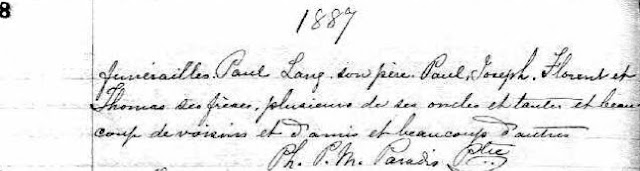 8
1887
funérailles. Paul Lang son père. Paul, Joseph, Florent et
Thomas ses frères, plusieurs de ses oncles et tantes et beau
coup de voisins et d'amis et beaucoup d'autres
Ph. P. M. Paradis Ptre